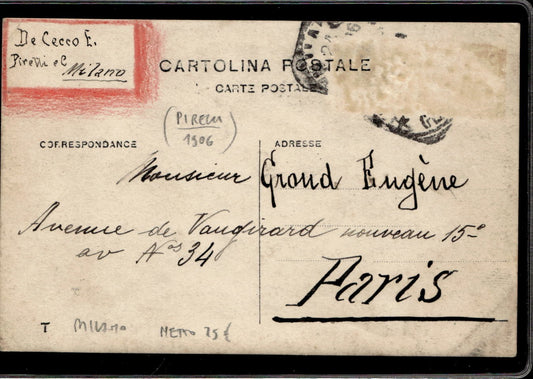 De Cecco E.
Pirelli e C
Milano
CARTOLINA POSTALE
CARTE POSTALE
(PIRELLI
1906)
CORRESPONDANCE
ADRESSE
Monsieur Grond Eugène
Avenue de Vaugirard nouveau 15º
av Nos 34
Paris
T MILANO NETTO 25 €